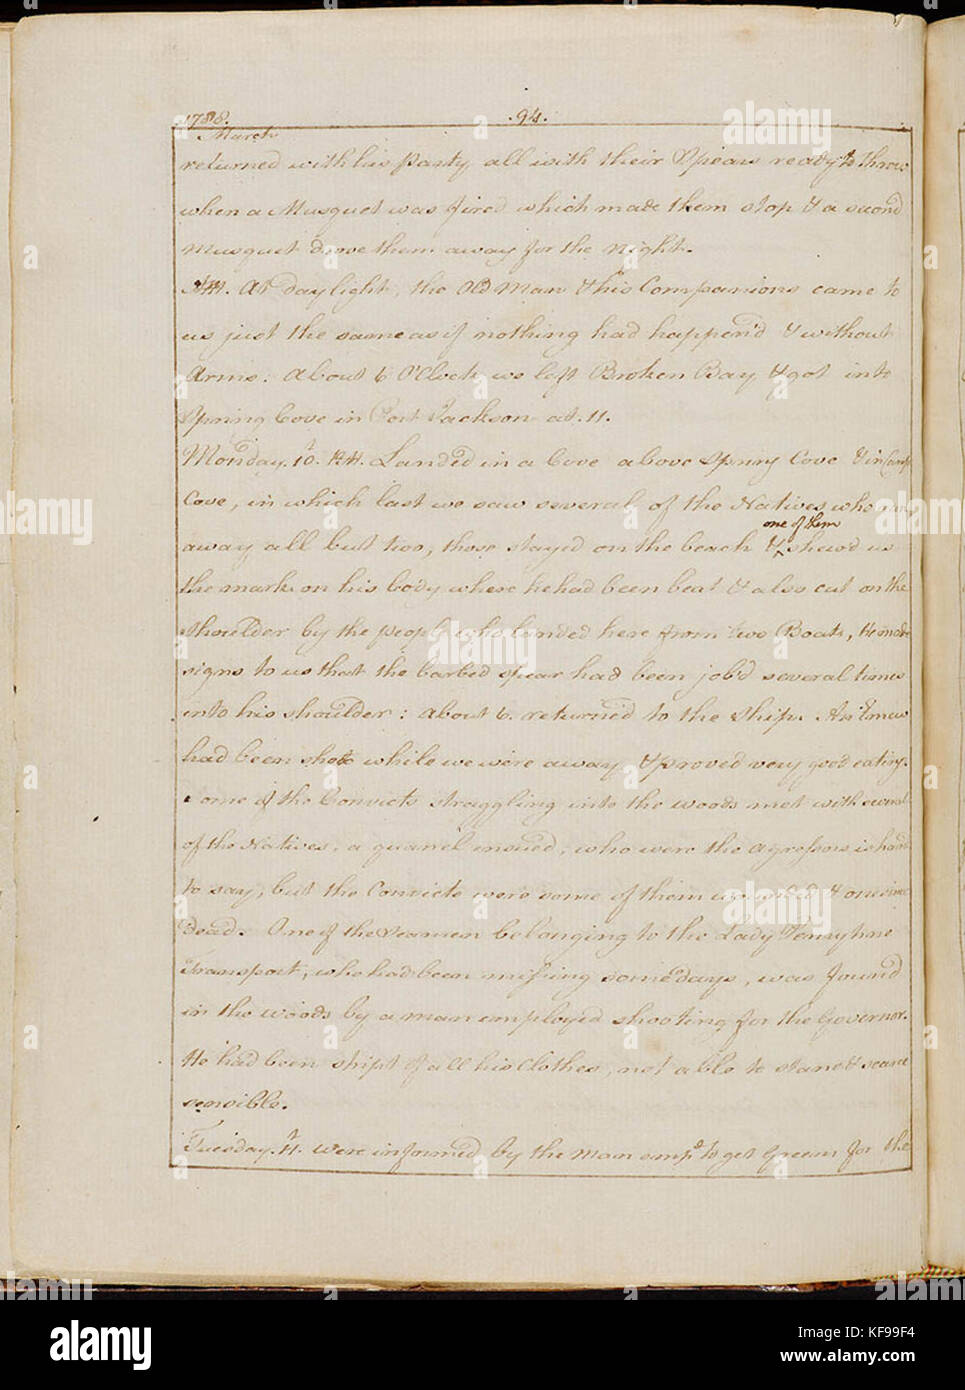 1788. .94.
March
returned with his Party all with their Spears ready to throw
when a Musquet was fired which made them stop & a second
Musquet drove them away for the night.
AM. At daylight, the Old Man & his Companions came to
us just the same as if nothing had happen'd & without
Arms. About 6 O'Clock we left Broken Bay & got into
Spring Cove in Port Jackson at 11.
Monday. 10. P.M. Landed in a Cove above Spring Cove & in Camp
Cove, in which last we saw several of the Natives who run
away all but two, those stayed on the beach & one of them shew'd us
the marks on his body where he had been beat & also cut on the
shoulder by the people who landed here from two Boats, He made
signs to us that the barbed spear had been job'd several times
into his shoulder: About 6. returned to the Ship. An Emew
had been shot while we were away & proved very good eating.
Some of the Convicts straggling into the woods met with several
of the Natives, a quarrel ensued, who were the agressors is hard
to say, but the Convicts were some of them wounded & one since
dead. One of the Seamen belonging to the Lady Penryhne
Transport, who had been missing some days, was found
in the woods by a man employed shooting for the Governor.
He had been stript of all his Clothes, not able to stand & scarce
sensible.
Tuesday. 11. Were informed by the Man empd. to get Greens for the
alamy
KF99F4
www.alamy.com